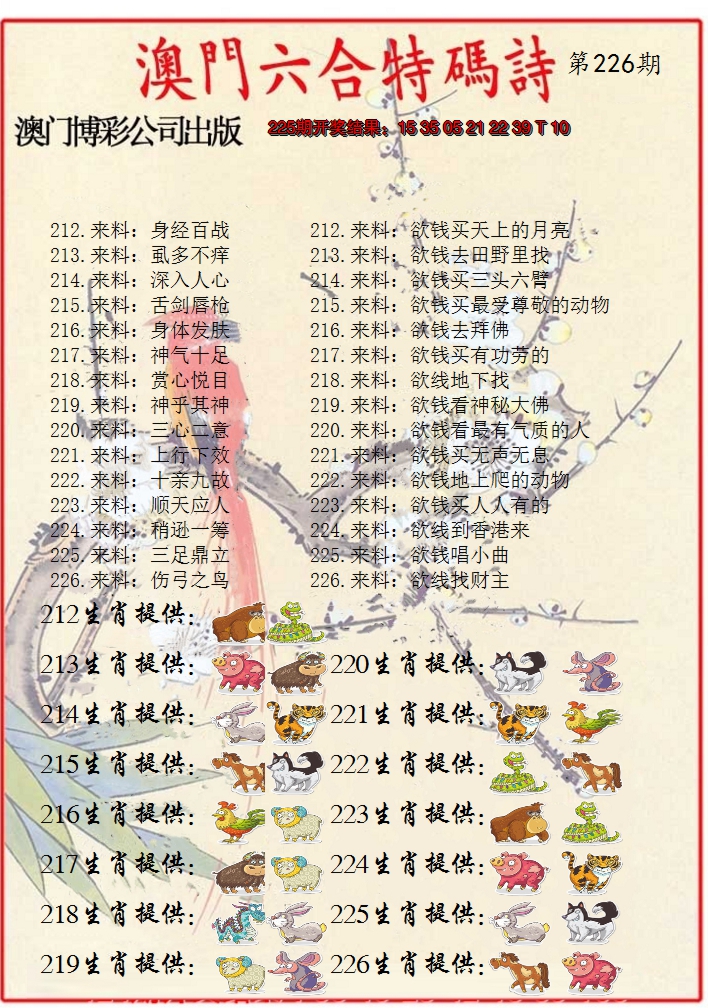 澳門六合特碼詩 第226期
澳门博彩公司出版 225期开奖结果：15 35 05 21 22 39 T 10
212.来料：身经百战 212.来料：欲钱买天上的月亮
213.来料：虱多不痒 213.来料：欲钱去田野里找
214.来料：深入人心 214.来料：欲钱买三头六臂
215.来料：舌剑唇枪 215.来料：欲钱买最受尊敬的动物
216.来料：身体发肤 216.来料：欲钱去拜佛
217.来料：神气十足 217.来料：欲钱买有功劳的
218.来料：赏心悦目 218.来料：欲线地下找
219.来料：神乎其神 219.来料：欲钱看神秘大佛
220.来料：三心二意 220.来料：欲钱看最有气质的人
221.来料：上行下效 221.来料：欲钱买无声无息
222.来料：十亲九故 222.来料：欲钱地上爬的动物
223.来料：顺天应人 223.来料：欲钱买人人有的
224.来料：稍逊一筹 224.来料：欲线到香港来
225.来料：三足鼎立 225.来料：欲钱唱小曲
226.来料：伤弓之鸟 226.来料：欲线找财主
212生肖提供：
213生肖提供： 220生肖提供：
214生肖提供： 221生肖提供：
215生肖提供： 222生肖提供：
216生肖提供： 223生肖提供：
217生肖提供： 224生肖提供：
218生肖提供： 225生肖提供：
219生肖提供： 226生肖提供：